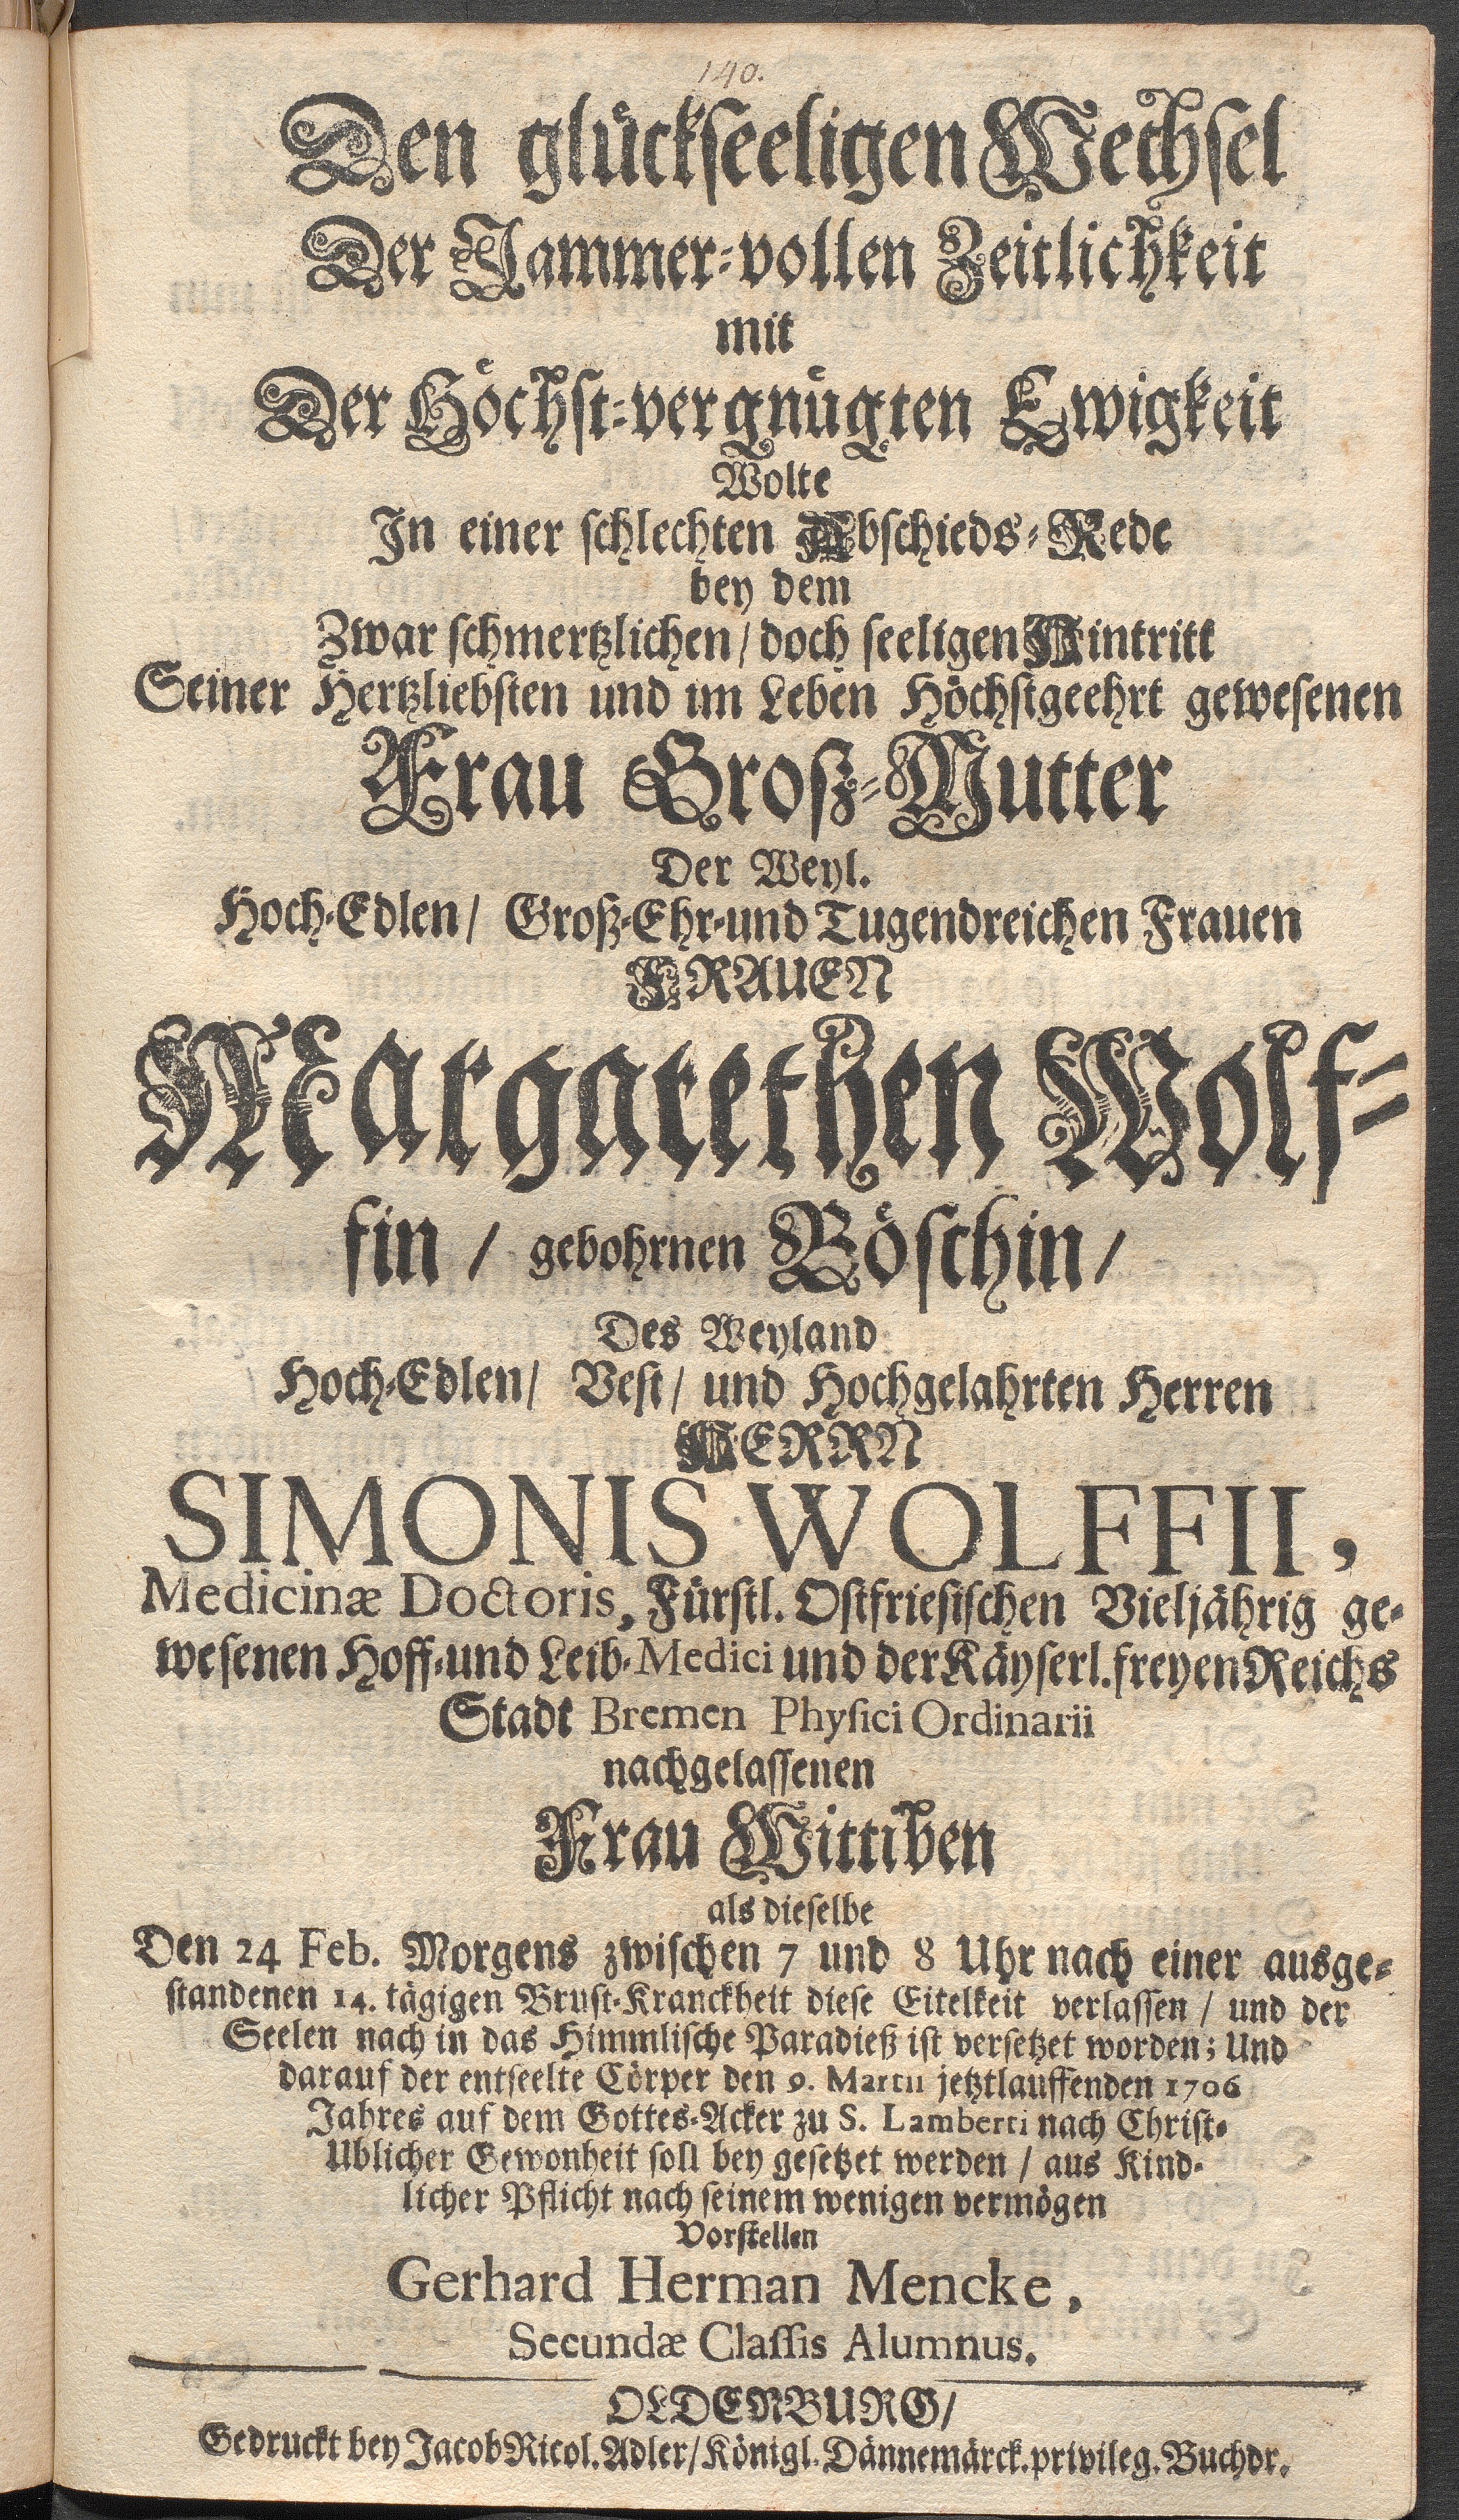 140.
Den glückseeligen Wechsel
Der Jammer-vollen Zeitlichkeit
mit
Der Höchst-vergnügten Ewigkeit
Wolte
In einer schlechten Abschieds-Rede
bey dem
Zwar schmertzlichen/ doch seeligen Hintritt
Seiner Hertzliebsten und im Leben Höchstgeehrt gewesenen
Frau Groß-Mutter
Der Weyl.
Hoch-Edlen/ Groß-Ehr-und Tugendreichen Frauen
FRAUEN
MArgarethen Wolf-
fin / gebohrnen Böschin/
Des Weyland
Hoch-Edlen/ Vest/ und Hochgelahrten Herren
HERRN
SIMONIS WOLFFII,
Medicinæ Doctoris, Fürstl. Ostfriesischen Vieljährig ge-
wesenen Hoff-und Leib-Medici und der Käyserl. freyen Reichs
Stadt Bremen Physici Ordinarii
nachgelassenen
Frau Wittiben
als dieselbe
Den 24 Feb. Morgens zwischen 7 und 8 Uhr nach einer ausge-
standenen 14. tägigen Brust-Kranckheit diese Eitelkeit verlassen / und der
Seelen nach in das Himmlische Paradieß ist versetzet worden; Und
darauf der entseelte Cörper den 9. Martii jetztlauffenden 1706
Jahres auf dem Gottes-Acker zu S. Lamberti nach Christ-
Ublicher Gewonheit soll bey gesetzet werden / aus Kind-
licher Pflicht nach seinem wenigen vermögen
Vorstellen
Gerhard Herman Mencke,
Secundæ Classis Alumnus.
OLDENBURG/
Gedruckt bey Jacob Nicol. Adler/ Königl. Dännemärck. privileg. Buchdr.